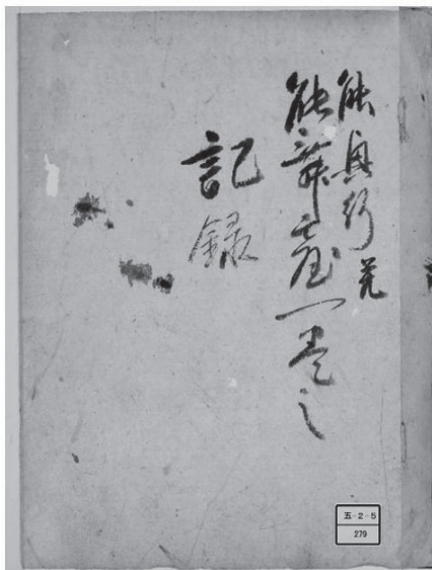 能興行并
能舞臺一巻之
記録
五-2-5
279